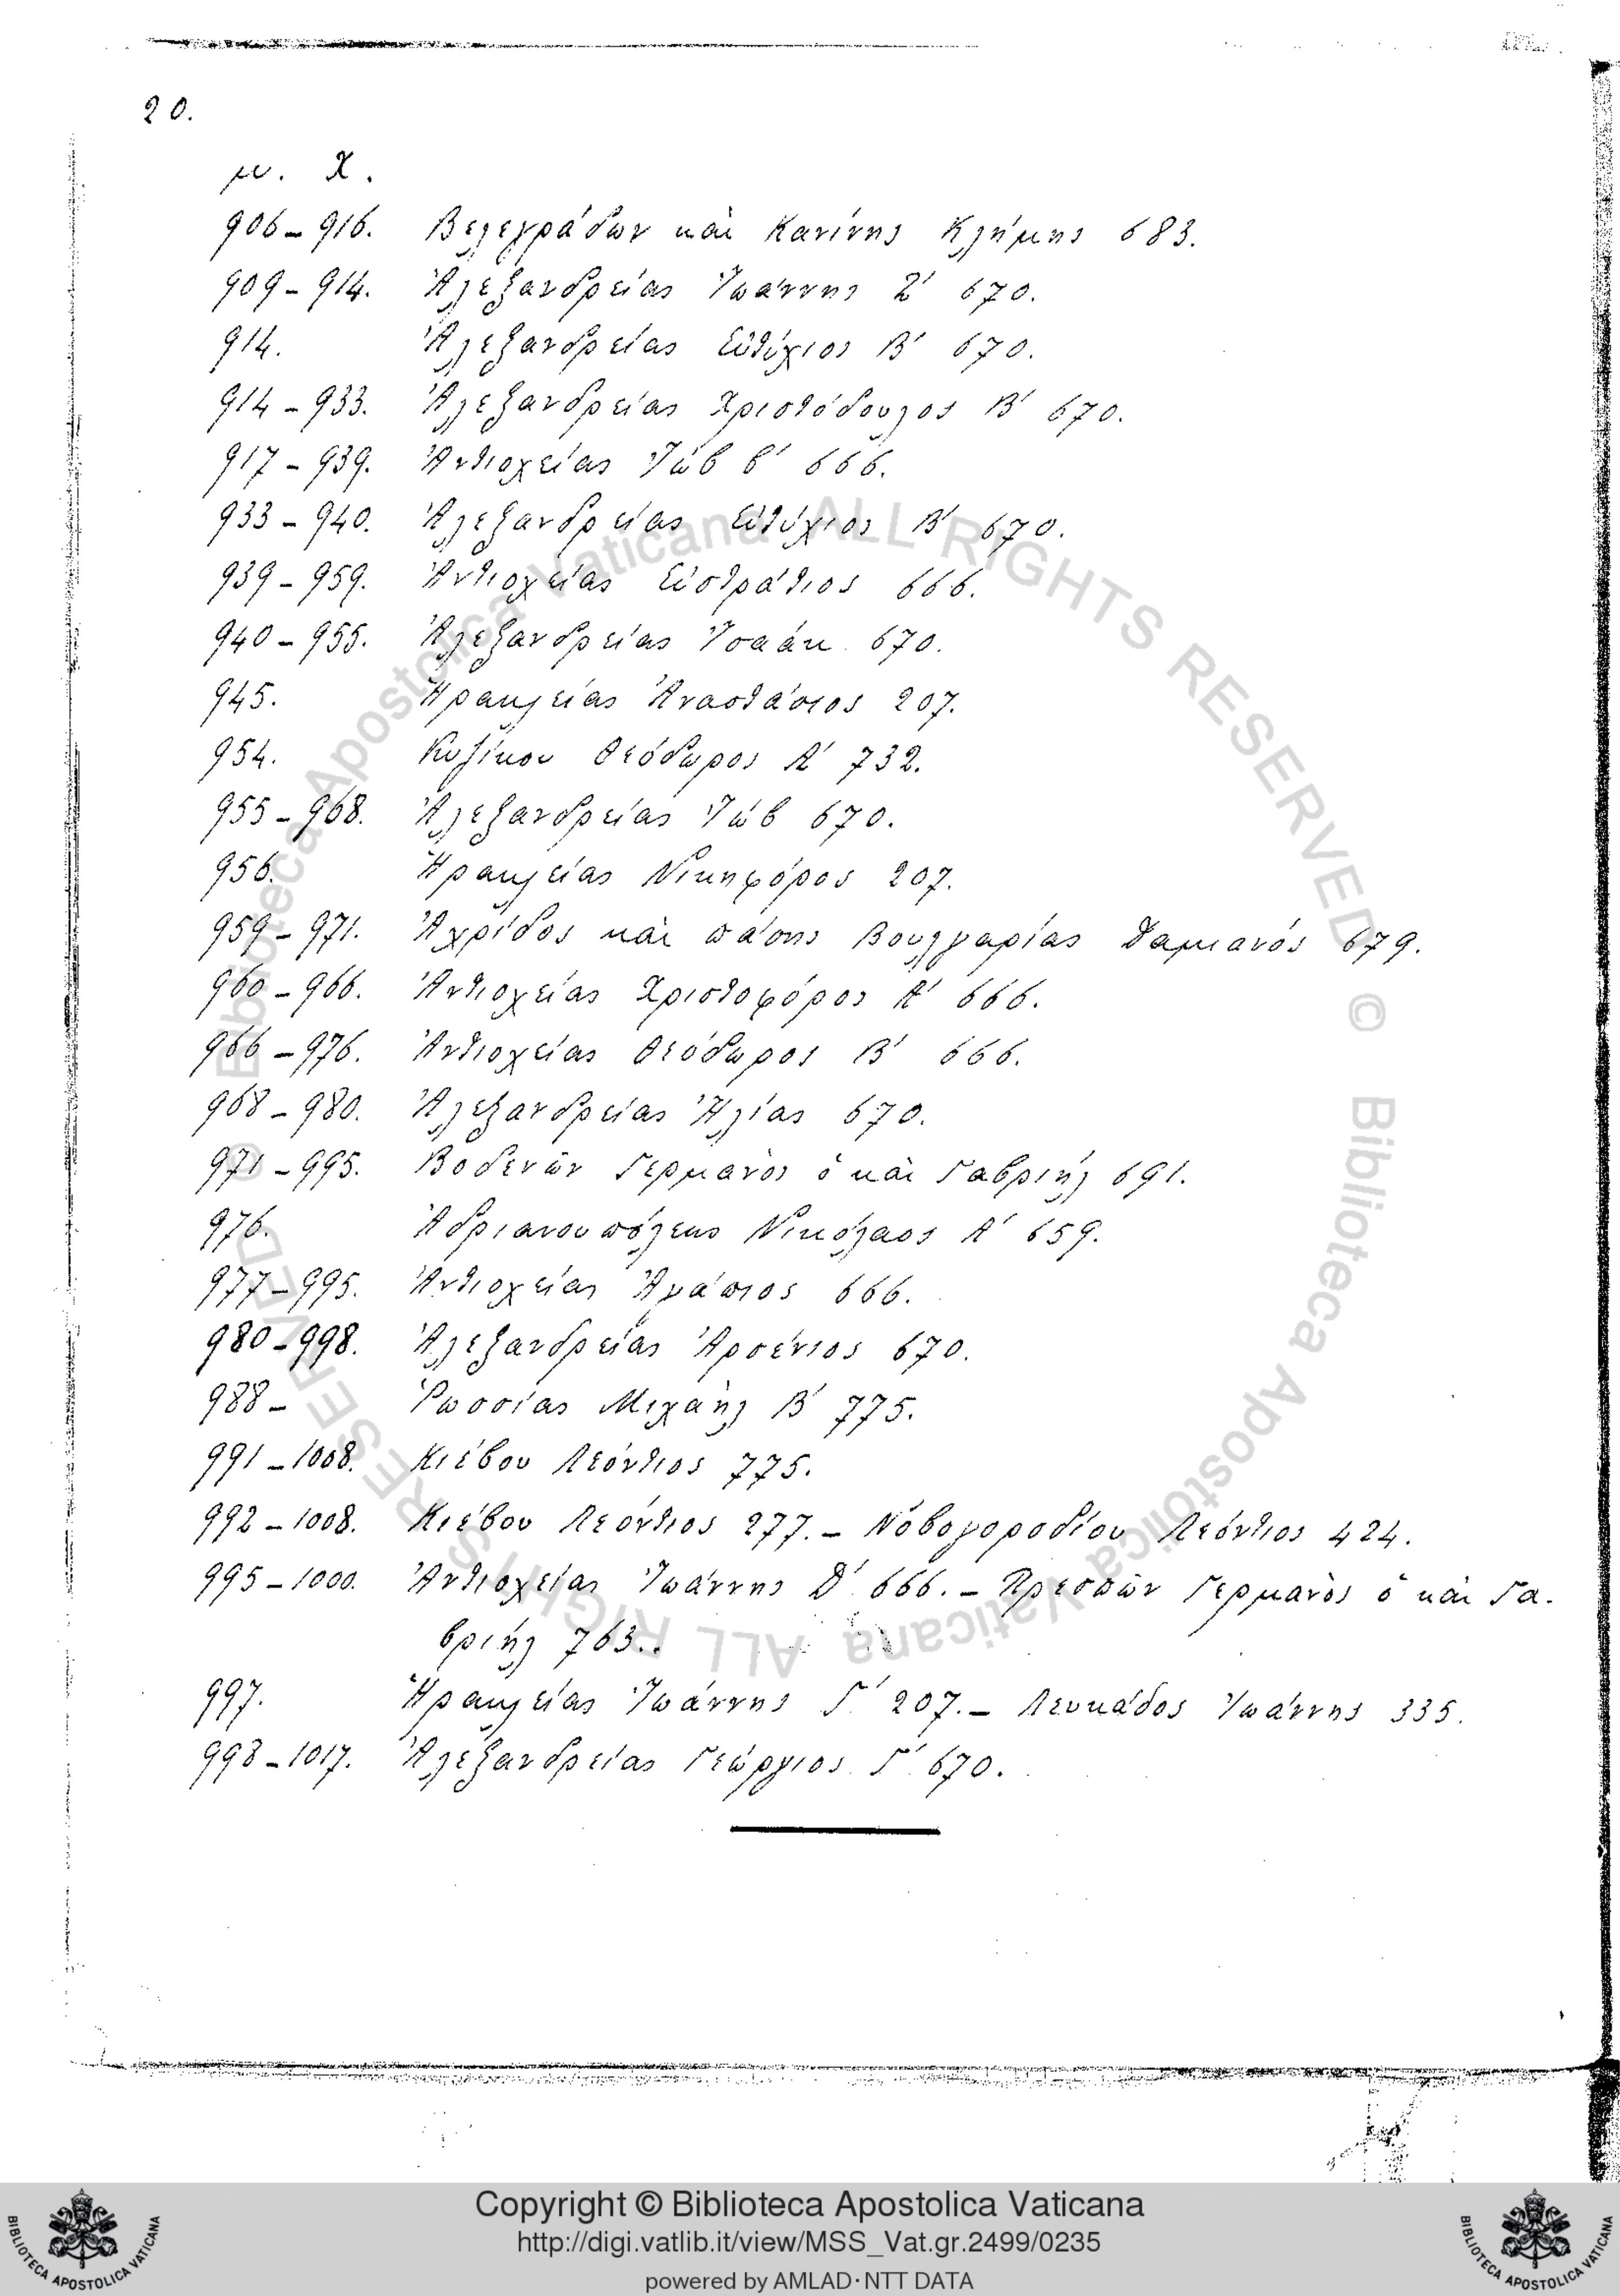 20.
μ. Χ.
906–916. Βελεγράδων καὶ Κανίνης Κλήμης 683.
909–914. Ἀλεξανδρείας Ἰωάννης Ζ′ 670.
914. Ἀλεξανδρείας Εὐθύχιος Β′ 670.
914–933. Ἀλεξανδρείας Χριστόδουλος Β′ 670.
917–939. Ἀντιοχείας Ἰὼβ β′ 666.
933–940. Ἀλεξανδρείας Εὐτύχιος Β′ 670.
939–959. Ἀντιοχείας Εὐστράτιος 666.
940–955. Ἀλεξανδρείας Ἰσαάκ 670.
945. Ἡρακλείας Ἀναστάσιος 207.
954. Κυζίκου Θεόδωρος Α′ 732.
955–968. Ἀλεξανδρείας Ἰὼβ 670.
956. Ἡρακλείας Νικηφόρος 207.
959–971. Ἀχρίδος καὶ πάσης Βουλγαρίας Δαμιανός 679.
960–966. Ἀντιοχείας Χριστοφόρος Α′ 666.
966–976. Ἀντιοχείας Θεόδωρος Β′ 666.
968–980. Ἀλεξανδρείας Ἠλίας 670.
971–995. Βοδενῶν Γερμανὸς ὁ καὶ Γαβριήλ 691.
976. Ἀδριανουπόλεως Νικόλαος Α′ 659.
977–995. Ἀντιοχείας Ἀγάπιος 666.
980–998. Ἀλεξανδρείας Ἀρσένιος 670.
988– Ῥωσσίας Μιχαὴλ Β′ 775.
991–1008. Κιέβου Λεόντιος 775.
992–1008. Κιέβου Λεόντιος 277.– Νοβογοροδίου Λεόντιος 424.
995–1000. Ἀντιοχείας Ἰωάννης Δ′ 666.– Πρεσπῶν Γερμανὸς ὁ καὶ Γα-
βριήλ 763.
997. Ἡρακλείας Ἰωάννης Γ′ 207.– Λευκάδος Ἰωάννης 335.
998–1017. Ἀλεξανδρείας Γεώργιος Γ′ 670.
© Biblioteca Apostolica Vaticana ALL RIGHTS RESERVED © Biblioteca Apostolica Vaticana ALL RIGHTS RESERVED
Copyright © Biblioteca Apostolica Vaticana
http://digi.vatlib.it/view/MSS_Vat.gr.2499/0235
powered by AMLAD·NTT DATA
BIBLIOTECA APOSTOLICA VATICANA
BIBLIOTECA APOSTOLICA VATICANA